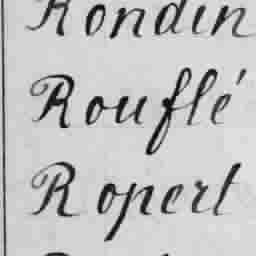 Rondin
Rouflé
Ropert